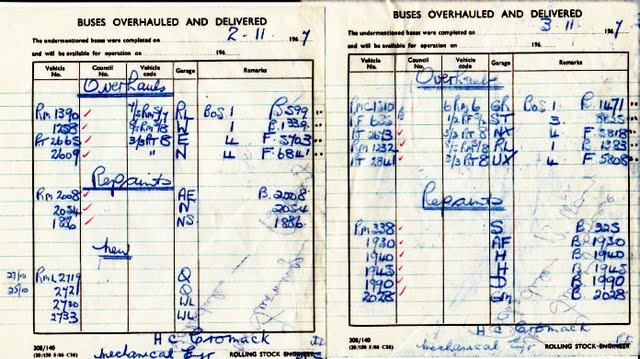 BUSES OVERHAULED AND DELIVERED
The undermentioned buses were completed on 2-11 196 7
and will be available for operation on 196
Vehicle No. Council No. Vehicle code Garage Remarks
Overhauls
RM 1390 ✓ RL BOS 1 B 599
1258 ✓ W 1 B. 1339
RT 2665 ✓ 3/3 RT 8 E 4 F 5703
2609 ✓ " N 4 F 6841
Repaints
RM 2008 ✓ AF B. 2008
2054 ✓ N 2054
1886 ✓ NS 1886
New
27/10 RML 2719 Q
25/10 2721 Q
2730 WL
2733 WL
H C Cromack
308/140
Mechanical Egr ROLLING STOCK ENGINEER
BUSES OVERHAULED AND DELIVERED
The undermentioned buses were completed on 3-11 196 7
and will be available for operation on 196
Vehicle No. Council No. Vehicle code Garage Remarks
Overhauls
RMC 1510 6 RM 6 GR BOS 1 B. 1471
ST 3
RT 2673 ✓ NX 4 F 5818
RM 1232 ✓ RL 1 B 1383
RT 2841 ✓ 3/3 RT 8 UX 4 F 5808
Repaints
RM 338 ✓ S B 325
1930 ✓ AF B. 1930
1940 ✓ H B 1940
1945 ✓ H B 1945
1990 ✓ U B 1990
2028 ✓ GM B. 2028
H C Cromack
308/140
Mechanical Egr ROLLING STOCK-ENGINEER